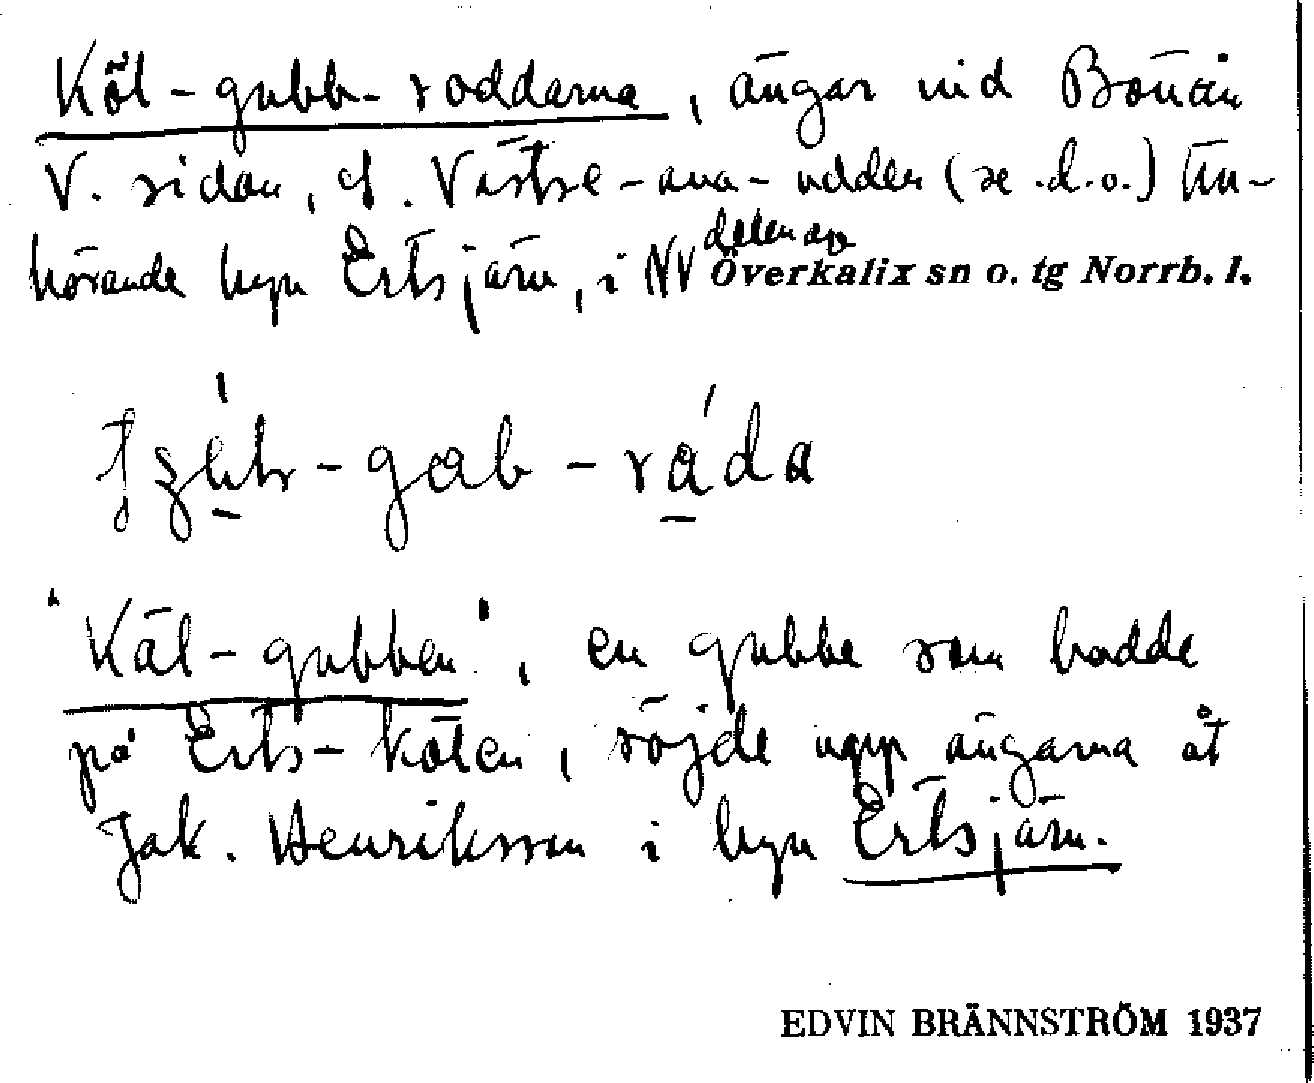 Köl-gubb-roddarna, ängar vid Bönån
V. sidan, Västse-ava-udden (se d.o.) till-
hörande byn Ertsjärv, i NV delen av Överkalix sn o. tg Norrb. l.
-gab-råda
"Käl-gubben", en gubbe som bodde
på Erts-kölen, röjde upp ängarna åt
Jak. Henriksson i byn Ertsjärv.
EDVIN BRÄNNSTRÖM 1937